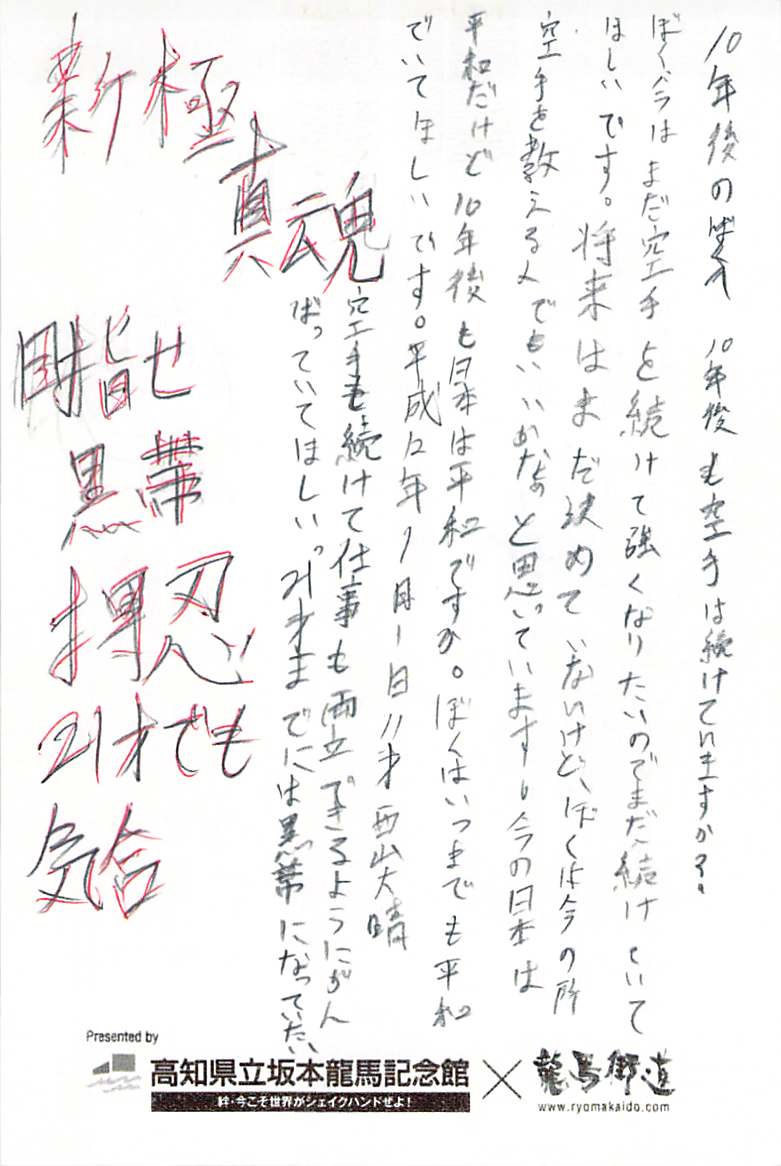 10年後のぼくへ　10年後も空手は続けていますか？。
ぼく今はまだ空手を続けて強くなりたいのでまだ続けていて
ほしいです。将来はまだ決めていないけど、ぼくは今の所
空手を教える人でもいいかなあと思っています。今の日本は
平和だけど10年後も日本は平和ですか。ぼくはいつまでも平和
でいてほしいです。平成12年1月1日11才 西山大晴
空手も続けて仕事も両立できるようにがん
ばっていてほしい。21才までには黒帯になっていたい
新極
真魂
目指せ
黒帯
押忍
21才でも
気合
Presented by
高知県立坂本龍馬記念館×龍馬街道
絆・今こそ世界がシェイクハンドぜよ！
www.ryomakaido.com